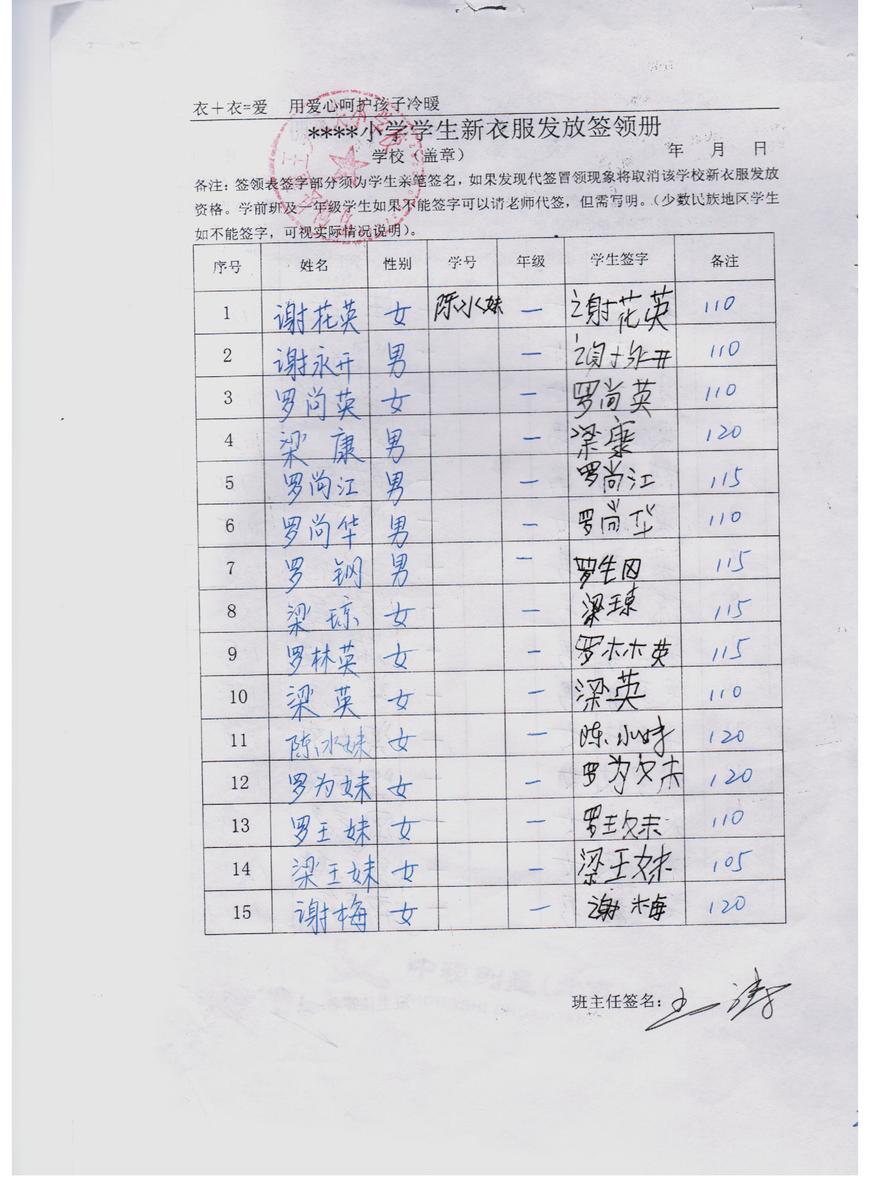 衣＋衣=爱　用爱心呵护孩子冷暖
****小学学生新衣服发放签领册
学校（盖章）　　年　月　日
备注：签领表签字部分须为学生亲笔签名，如果发现代签冒领现象将取消该学校新衣服发放
资格。学前班及一年级学生如果不能签字可以请老师代签，但需写明。（少数民族地区学生
如不能签字，可视实际情况说明）。
序号 姓名 性别 学号 年级 学生签字 备注
1 谢花英 女 陈冰妹 一 谢花英 110
2 谢永开 男 一 谢永开 110
3 罗尚英 女 一 罗尚英 110
4 梁康 男 一 梁康 120
5 罗尚江 男 一 罗尚江 115
6 罗尚华 男 一 罗尚华 110
7 罗钢 男 一 罗钢 115
8 梁琼 女 一 梁琼 115
9 罗林英 女 一 罗林英 115
10 梁英 女 一 梁英 110
11 陈冰妹 女 一 陈冰妹 120
12 罗为妹 女 一 罗为妹 120
13 罗王妹 女 一 罗王妹 110
14 梁王妹 女 一 梁王妹 105
15 谢梅 女 一 谢梅 120
班主任签名：